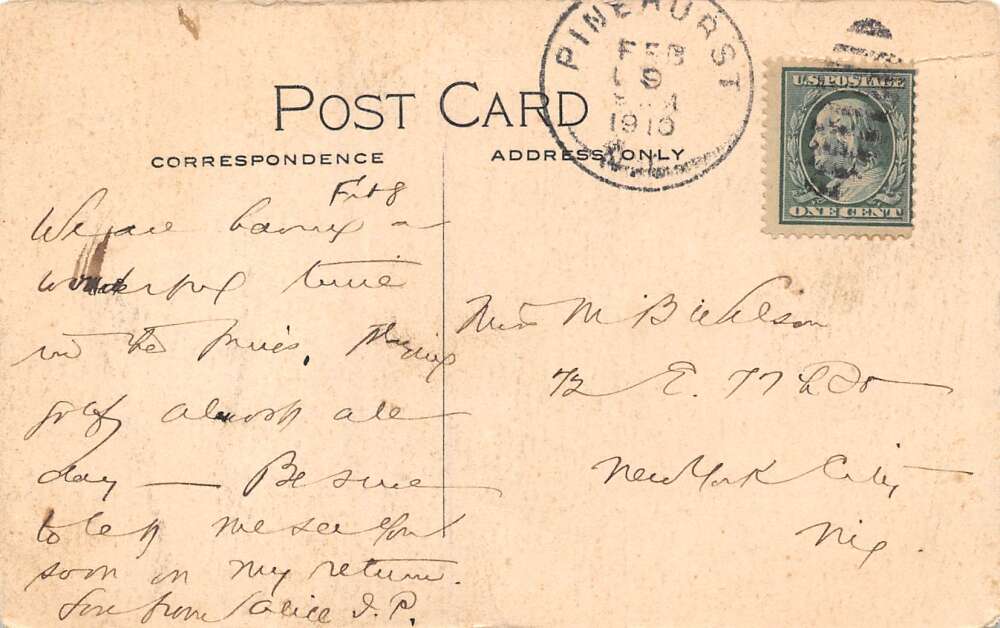 PINEHURST
FEB
9
1910
U.S. POSTAGE
ONE CENT
POST CARD
CORRESPONDENCE
ADDRESS ONLY
Feb 8
We are having a
wonderful time
in the pines. Playing
golf almost all
day — Be sure
to let me see you
soon on my return.
Love from Alice I. P.
Miss M Bickelson
72 E. 77th St
New York City
N.Y.